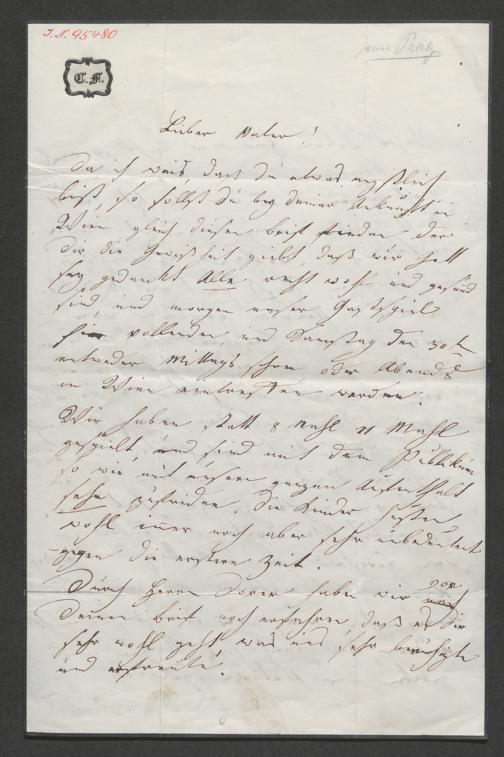 I. N. 95480
von Prag
C. F.
Lieber Vater!
Da ich weis, daß du etwas ängstlich
bist, so sollst du bey deiner Ankunft in
Wien gleich diesen Brief finden der
Dir die Gewißheit giebt daß wir Gott
sey gedankt Alle recht wohl und gesund
sind, und morgen unser Gastspiel
vollenden, und Samstag den 30ten
entweder Mittags schon oder Abends
in Wien eintreffen werden.
Wir haben statt 8 Mahl 11 Mahl
gespielt, und sind mit dem Publikum
so wie mit unsern ganzen Aufenthalt
sehr zufrieden. Die Kinder husten
wohl imer noch aber sehr unbedeutend
gegen die erstere Zeit.
Durch Herrn Dorer haben wir vor
Deinen Brief noch erfahren, daß es Dir
sehr wohl geht, was uns sehr beruhigte
und erfreute.